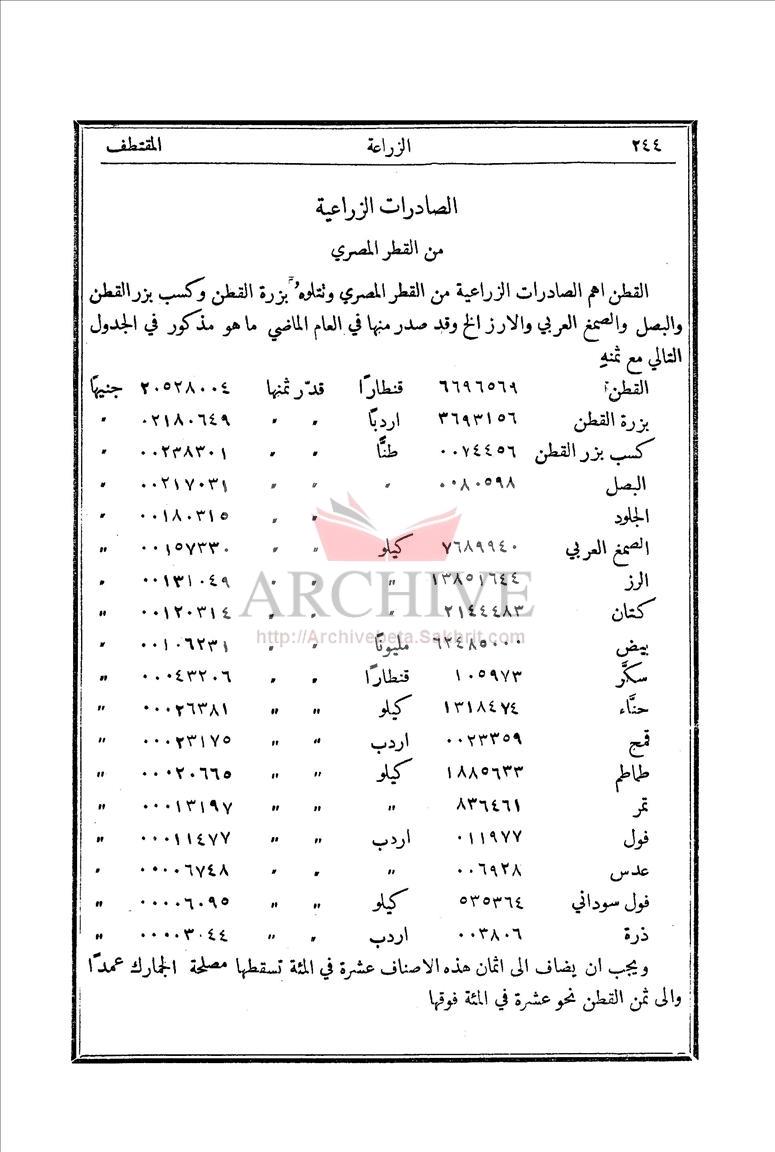 ٢٤٤ الزراعة المقتطف
الصادرات الزراعية
من القطر المصري
القطن اهم الصادرات الزراعية من القطر المصري وتتلوهُ بزرة القطن وكسب بزر القطن
والبصل والصمغ العربي والارز الخ وقد صدر منها في العام الماضي ما هو مذكور في الجدول
التالي مع ثمنهِ
القطن ٦٦٩٦٥٦٩ قنطارًا قدّر ثمنها ٢٠٥٢٨٠٠٤ جنيهًا
بزرة القطن ٣٦٩٣١٥٦ اردبًا " " ٠٢١٨٠٦٤٩ "
كسب بزر القطن ٠٠٧٤٤٥٦ طنًّا " " ٠٠٢٣٨٣٠١ "
البصل ٠٠٨٠٥٩٨ " " " ٠٠٢١٧٠٣١ "
الجلود " " ٠٠١٨٠٣١٥ "
الصمغ العربي ٧٦٨٩٩٤٠ كيلو " " ٠٠١٥٧٣٣٠ "
الرز ١٣٨٥١٦٤٤ " " " ٠٠١٣١٠٤٩ "
كتان ٢١٤٤٤٨٣ " " " ٠٠١٢٠٣١٤ "
بيض ٦٢٤٨٥٠٠٠ مليونًا " " ٠٠١٠٦٢٣١ "
سكَّر ١٠٥٩٧٣ قنطارًا " " ٠٠٠٤٣٢٠٦ "
حنَّاء ١٣١٨٤٧٤ كيلو " " ٠٠٠٢٦٣٨١ "
قمح ٠٠٢٣٣٥٩ اردب " " ٠٠٠٢٣١٧٥ "
طماطم ١٨٨٥٦٣٣ كيلو " " ٠٠٠٢٠٦٦٥ "
تمر ٨٣٦٤٦١ " " " ٠٠٠١٣١٩٧ "
فول ٠١١٩٧٧ اردب " " ٠٠٠١١٤٧٧ "
عدس ٠٠٦٩٢٨ " " " ٠٠٠٠٦٧٤٨ "
فول سوداني ٥٣٥٣٦٤ كيلو " " ٠٠٠٠٦٠٩٥ "
ذرة ٠٠٣٨٠٦ اردب " " ٠٠٠٠٣٠٤٤ "
ويجب ان يضاف الى اثمان هذه الاصناف عشرة في المئة تسقطها مصلحة الجمارك عمدًا
والى ثمن القطن نحو عشرة في المئة فوقها
ARCHIVE
http://Archivebeta.Sakhrit.com